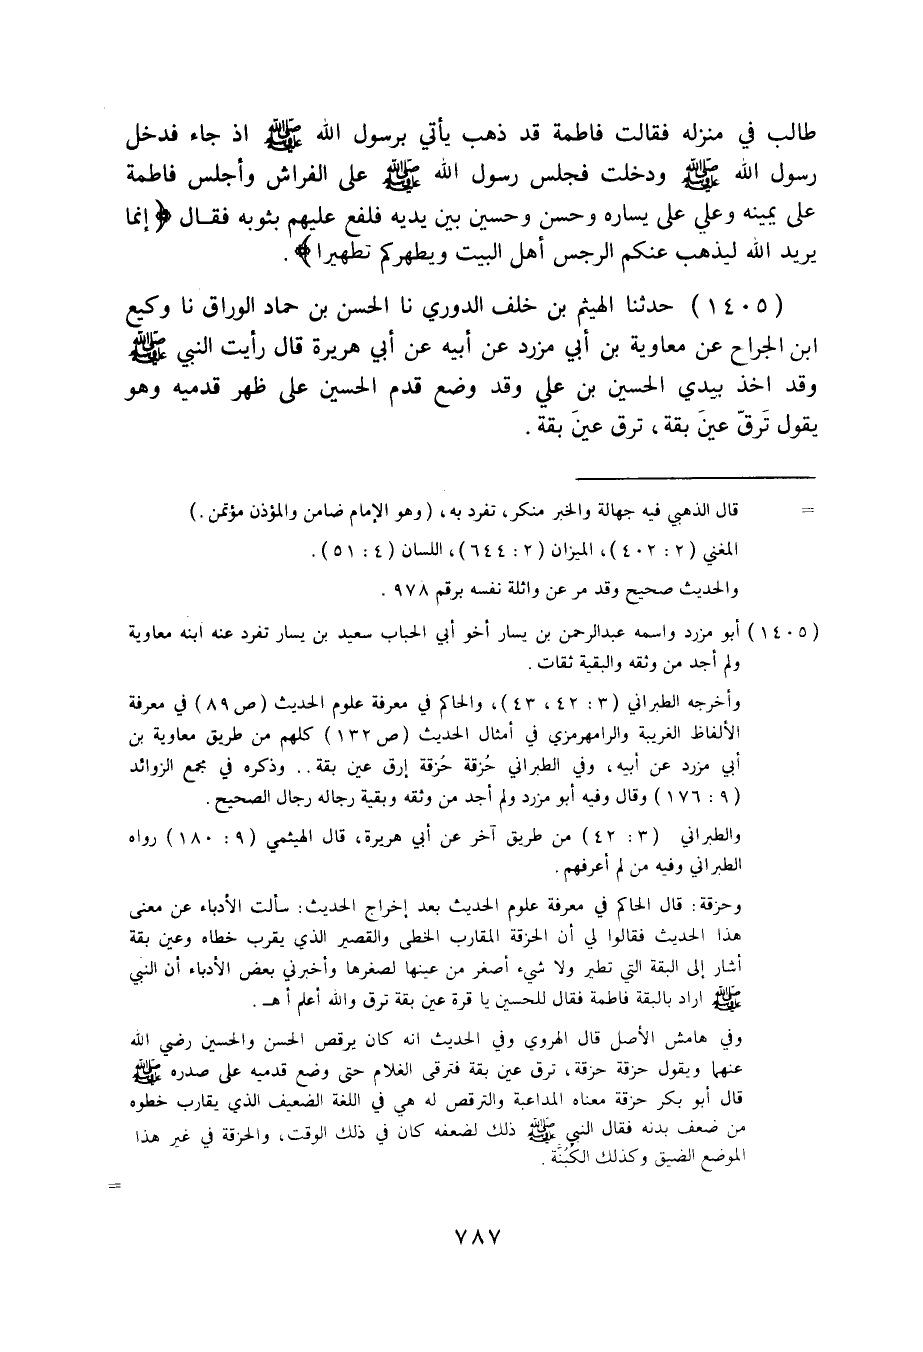 طالب في منزله فقالت فاطمة قد ذهب يأتي برسول الله ﷺ اذ جاء فدخل
رسول الله ﷺ ودخلت فجلس رسول الله ﷺ على الفراش وأجلس فاطمة
على يمينه وعلي على يساره وحسن وحسين بين يديه فلفع عليهم بثوبه فقال ﴿ إنما
يريد الله ليذهب عنكم الرجس أهل البيت ويطهركم تطهيرا ﴾ .
( ١٤٠٥ ) حدثنا الهيثم بن خلف الدوري نا الحسن بن حماد الوراق نا وكيع
ابن الجراح عن معاوية بن أبي مزرد عن أبيه عن أبي هريرة قال رأيت النبي ﷺ
وقد اخذ بيدي الحسين بن علي وقد وضع قدم الحسين على ظهر قدميه وهو
يقول تَرقّ عينَ بقة ، ترق عينَ بقة .
= قال الذهبي فيه جهالة والخبر منكر، تفرد به، ( وهو الإمام ضامن والمؤذن مؤتمن . )
المغني ( ٢ : ٤٠٢ )، الميزان ( ٢ : ٦٤٤ )، اللسان ( ٤ : ٥١ ) .
والحديث صحيح وقد مر عن واثلة نفسه برقم ٩٧٨ .
( ١٤٠٥ ) أبو مزرد واسمه عبدالرحمن بن يسار أخو أبي الحباب سعيد بن يسار تفرد عنه ابنه معاوية
ولم أجد من وثقه والبقية ثقات .
وأخرجه الطبراني ( ٣ : ٤٢ ، ٤٣ )، والحاكم في معرفة علوم الحديث ( ص ٨٩ ) في معرفة
الألفاظ الغريبة والرامهرمزي في أمثال الحديث ( ص ١٣٢ ) كلهم من طريق معاوية بن
أبي مزرد عن أبيه، وفي الطبراني حُزقة حُزقة إرق عين بقة .. وذكره في مجمع الزوائد
( ٩ : ١٧٦ ) وقال وفيه أبو مزرد ولم أجد من وثقه وبقية رجاله رجال الصحيح .
والطبراني ( ٣ : ٤٢ ) من طريق آخر عن أبي هريرة، قال الهيثمي ( ٩ : ١٨٠ ) رواه
الطبراني وفيه من لم أعرفهم .
وحزقة : قال الحاكم في معرفة علوم الحديث بعد إخراج الحديث : سألت الأدباء عن معنى
هذا الحديث فقالوا لي أن الحزقة المقارب الخطى والقصير الذي يقرب خطاه وعين بقة
أشار إلى البقة التي تطير ولا شيء أصغر من عينها لصغرها وأخبرني بعض الأدباء أن النبي
ﷺ اراد بالبقة فاطمة فقال للحسين يا قرة عين بقة ترق والله أعلم أ هـ .
وفي هامش الأصل قال الهروي وفي الحديث انه كان يرقص الحسن والحسين رضي الله
عنهما ويقول حزقة حزقة، ترق عين بقة فترقى الغلام حتى وضع قدميه على صدره ﷺ
قال أبو بكر حزقة معناه المداعبة والترقص له هي في اللغة الضعيف الذي يقارب خطوه
من ضعف بدنه فقال النبي ﷺ ذلك لضعفه كان في ذلك الوقت، والحزقة في غير هذا
الموضع الضيق وكذلك الكُبُنَّة .
=
٧٨٧